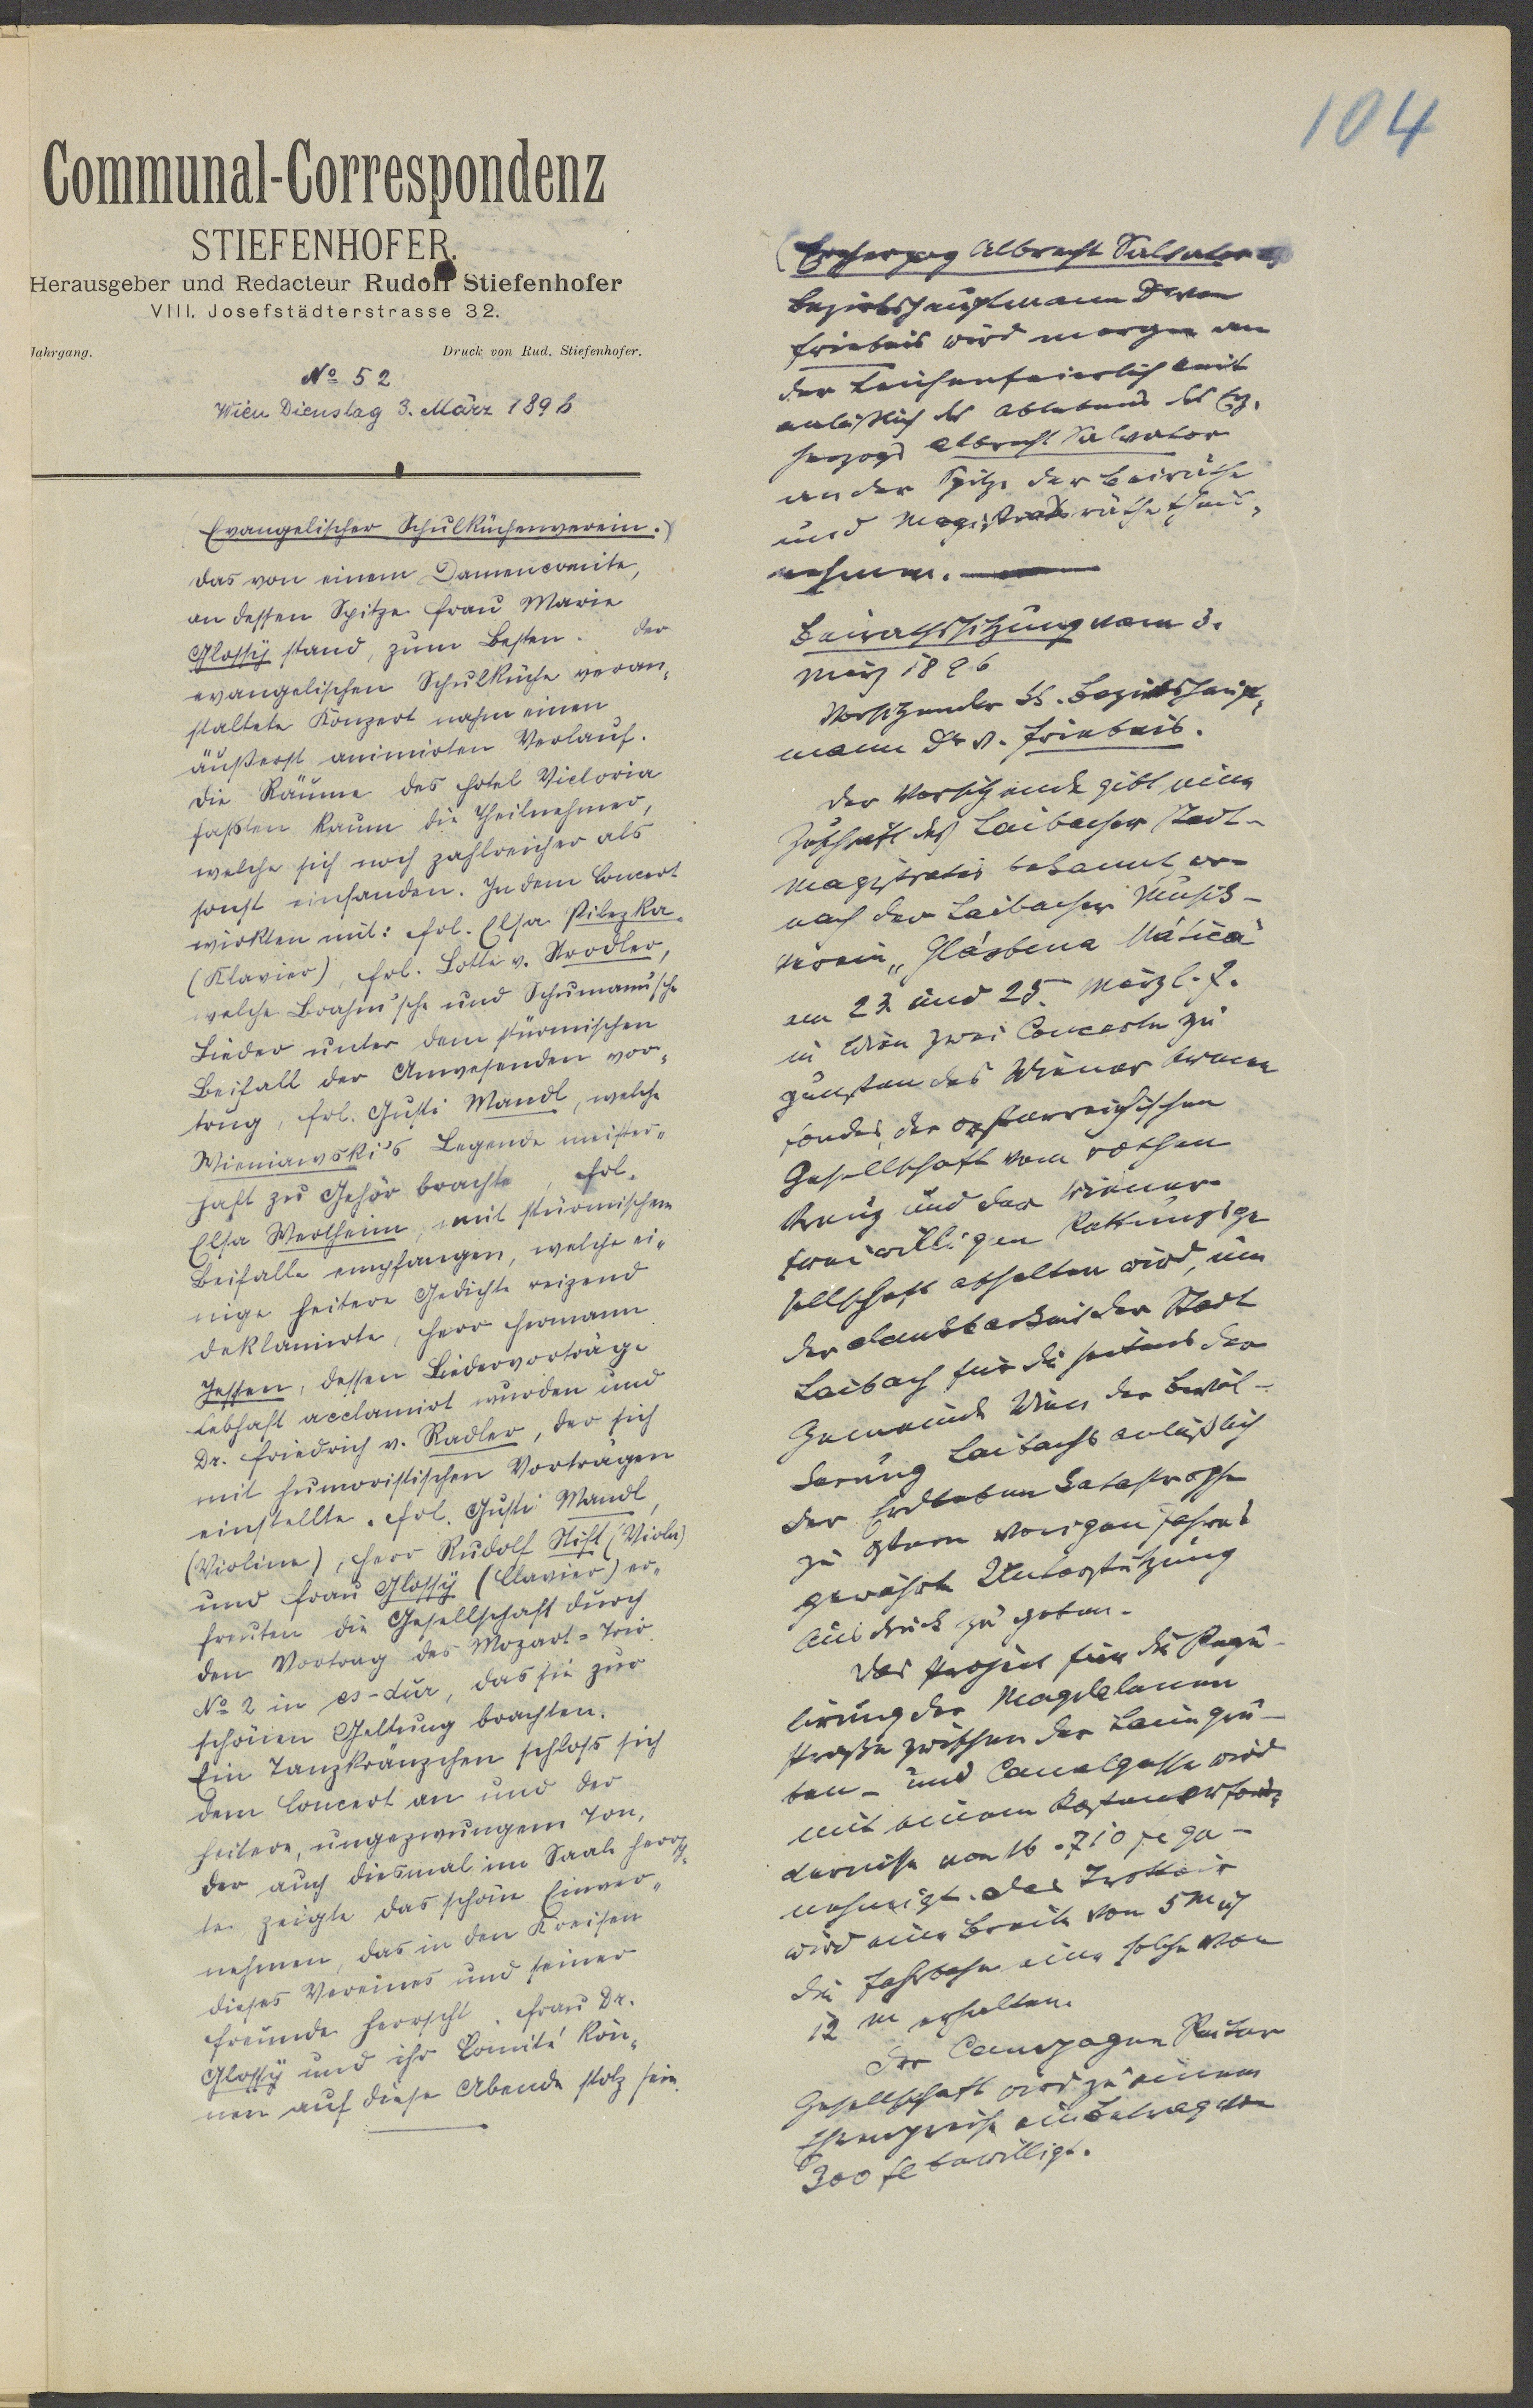 104
Communal-Correspondenz
STIEFENHOFER.
Herausgeber und Redacteur Rudolf Stiefenhofer
VIII. Josefstädterstrasse 32.
Jahrgang. Druck von Rud. Stiefenhofer.
No 52
Wien Dienstag 3. März 1896
(Evangelischer Schulküchenverein.)
Das von einem Damencomite,
an dessen Spitze Frau Marie
Glossy stand, zum Besten der
evangelischen Schulküche veran-
staltete Konzert nahm einen
äußerst animirten Verlauf.
Die Räume des Hotel Victoria
faßten kaum die Theilnehmer,
welche sich noch zahlreicher als
sonst einfanden. In dem Concert
wirkten mit: Frl. Elsa Pilezka
(Klavier), Frl. Lotte v.
welche Brahm'sche und Schumann'sche
Lieder unter dem stürmischen
Beifall der Anwesenden vor-
trug, Frl. Gusti Mandl, welche
Wieniawski's Legende meister-
haft zu Gehör brachte, Frl.
Elsa Wertheim, mit stürmischem
Beifalle empfangen, welche ei-
nige heitere Gedichte reizend
deklamirte, Herr Hermann
Jessen, dessen Liedervorträge
lebhaft acclamirt wurden und
Dr. Friedrich v. Radler, der sich
mit humoristischen Vorträgen
einstellte. Frl. Gusti Mandl,
(Violine), Herr Rudolf Stift (Viola)
und Frau Glossy (Clavier) er-
freuten die Gesellschaft durch
den Vortrag des Mozart-Trio
No 2 in es-dur, das sie zur
schönen Geltung brachten.
Ein Tanzkränzchen schloß sich
dem Concert an und der
heitere, ungezwungene Ton,
der auch diesmal im Saale herrsch-
te zeigte das schöne Einver-
nehmen, das in den Kreisen
dieses Vereines und seiner
Freunde herrscht. Frau Dr.
Glossy und ihr Comité kön-
nen auf diese Abende stolz sein.
(Erzherzog Albrecht Salvator
Bezirkshauptmann Dr von
Friebeis wird morgen an
der Leichenfeierlichkeit
anläßlich des Ablebens des Erz-
herzogs Albrecht Salvator
an der Spitze der Beiräthe
und Magistratsräthe theil-
nehmen.
Beirathssitzung vom 3.
März 1896
Vorsitzender Bezirkshaupt-
mann Dr v. Friebeis.
Der Vorsitzende gibt eine
Zuschrift des Laibacher Stadt-
magistrates bekannt, wo-
nach der Laibacher Musik-
verein „Glásbena Mática"
am 23 und 25. März l. J.
in Wien zwei Concerte zu
gunsten des Wiener Armen
fondes, der österreichischen
Gesellschaft vom rothen
Kreuz und der Wiener
freiwilligen Rettungsge
sellschaft abhalten wird, um
der Dankbarkeit der Stadt
Laibach für die seitens der
Gemeinde Wien der Bevöl-
kerung Laibachs anläßlich
der Erdbeben Katastrophe
zu Ostern vorigen Jahres
gewährte Unterstützung
Ausdruck zu geben.
Das Project für die Regu-
lirung der Magdalenen
straße zwischen der Laimgru-
ben- und Canalgasse wird
mit einem Kostenerfor-
dernisse von 16.710 fl ge-
nehmigt. Das Trottoir
wird eine Breite von 5 m
die Fahrbahn eine solche von
12 m erhalten.
Der Campagne Reiter
Gesellschaft wird zu einem
Ehrenpreise ein Betrag von
300 fl bewilligt.